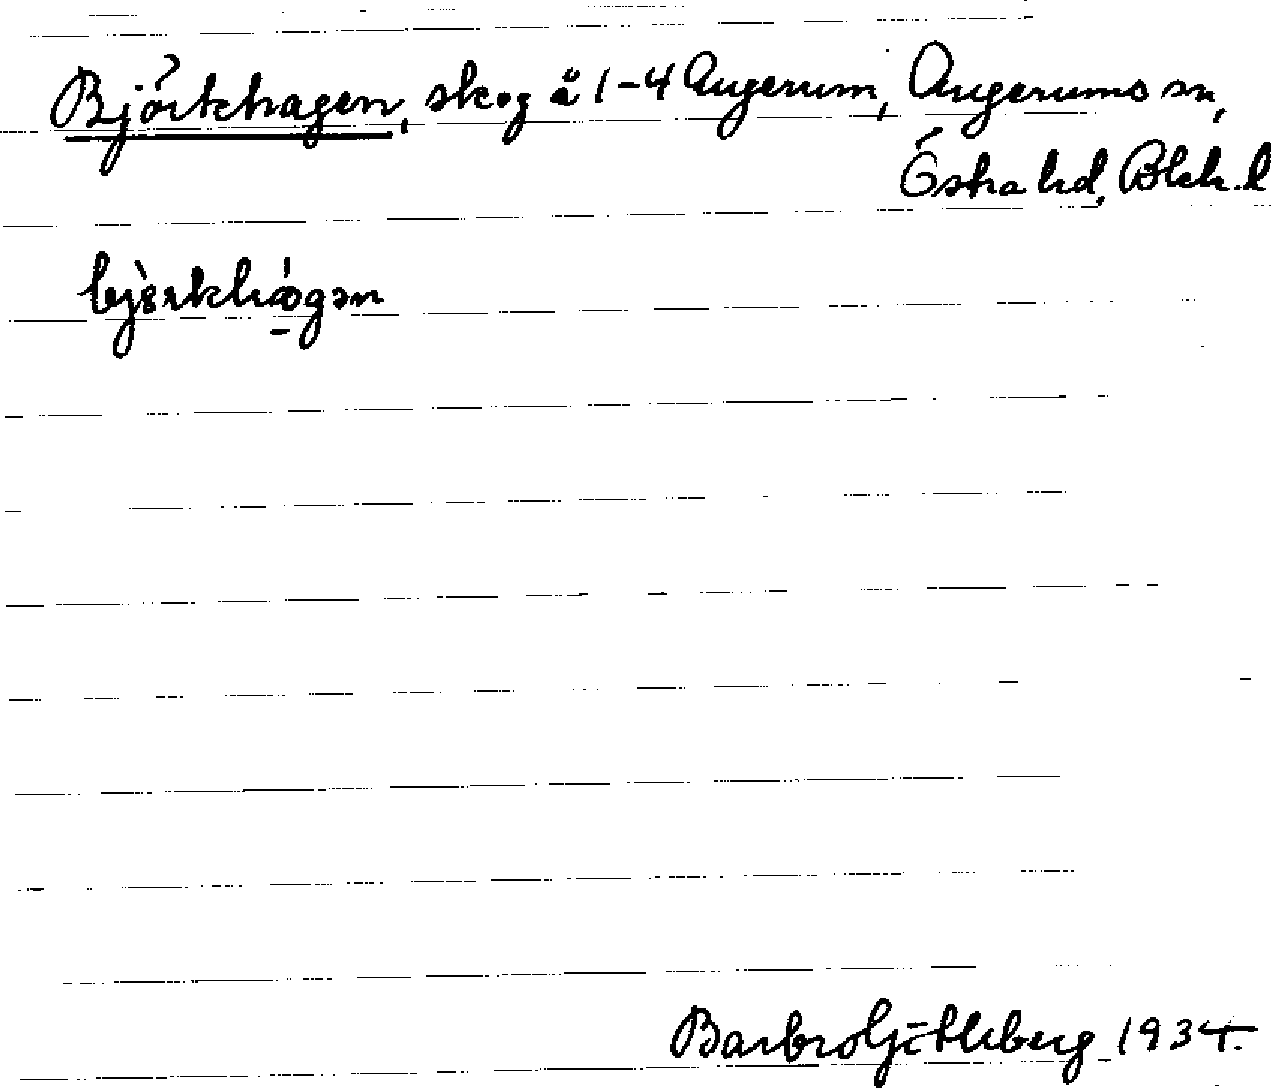 Björkhagen, skog å 1-4 Augerum, Augerums sn,
Östra hd, Blek. l
bjö̀rkhá̱gən
Barbro Götleberg 1934.